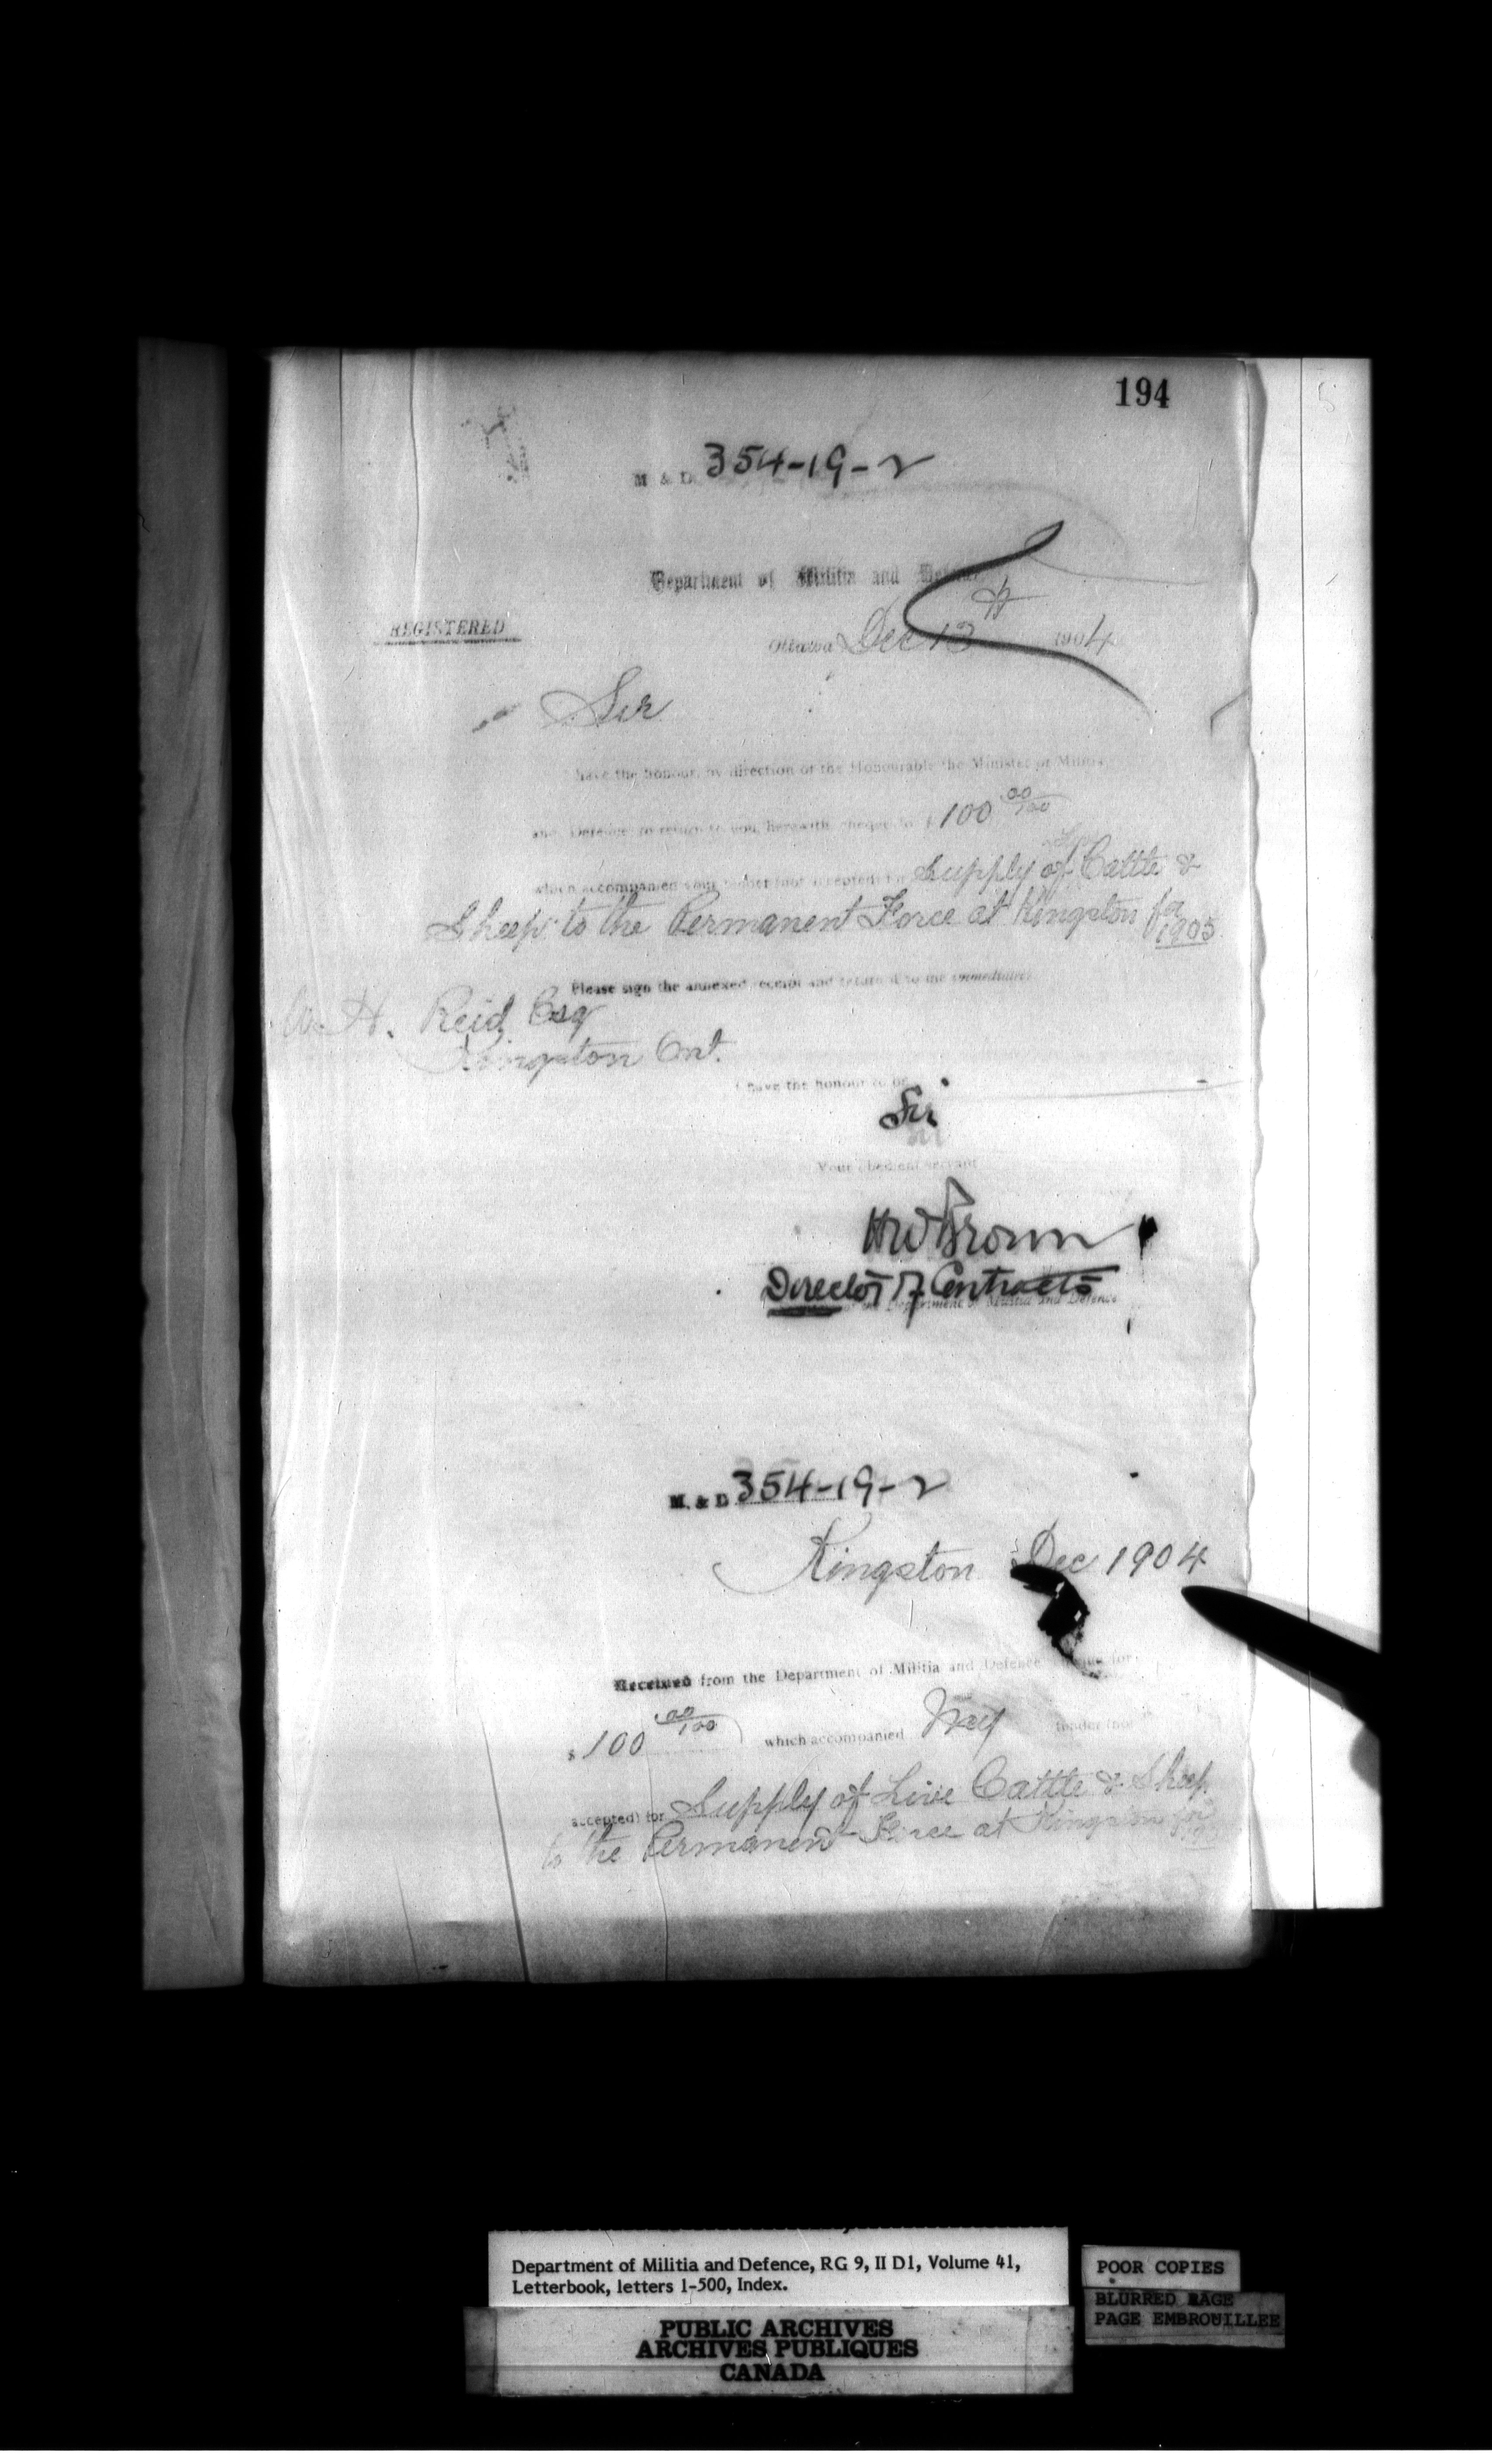 194
M & D. 354-19-2
Department of Militia and Defence
REGISTERED
Ottawa Dec 13th 1904
Sir
have the honour, by direction of the Honourable the Minister of Militia
and Defence to return to you, herewith, cheque for $ 100 00/100
which accompanied your tender (not accepted) for Supply of Live Cattle &
Sheep to the Permanent Force at Kingston for
1905
Please sign the annexed receipt and return it to me immediately
W. H. Reid Esq
Kingston Ont.
I have the honour to be
Sir
Your obedient servant
HW Brown
Director of Contracts
the Department of Militia and Defence
M. & D. 354-19-2
Kingston Dec 1904
Received from the Department of Militia and Defence cheque for
$ 100 00/100 which accompanied My tender (not
accepted) for Supply of Live Cattle & Sheep
to the Permanent Force at Kingston for
Department of Militia and Defence, RG 9, II D1, Volume 41,
Letterbook, letters 1-500, Index.
PUBLIC ARCHIVES
ARCHIVES PUBLIQUES
CANADA
POOR COPIES
BLURRED PAGE
PAGE EMBROUILLEE